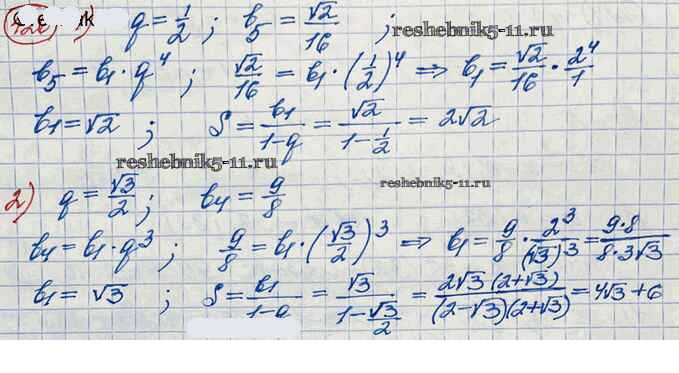 1) q = 1/2 ; b₅ = √2/16 ;
reshebnik5-11.ru
b₅ = b₁ · q⁴ ; √2/16 = b₁ · (1/2)⁴ ⇒ b₁ = √2/16 · 2⁴/1
b₁ = √2 ; S = b₁/(1-q) = √2/(1-1/2) = 2√2
reshebnik5-11.ru
reshebnik5-11.ru
2) q = √3/2 ; b₄ = 9/8
b₄ = b₁ · q³ ; 9/8 = b₁ · (√3/2)³ ⇒ b₁ = 9/8 · 2³/(√3)³ = 9·8/8·3√3
b₁ = √3 ; S = b₁/(1-q) = √3/(1-√3/2) = 2√3 (2+√3)/(2-√3)(2+√3) = 4√3 + 6